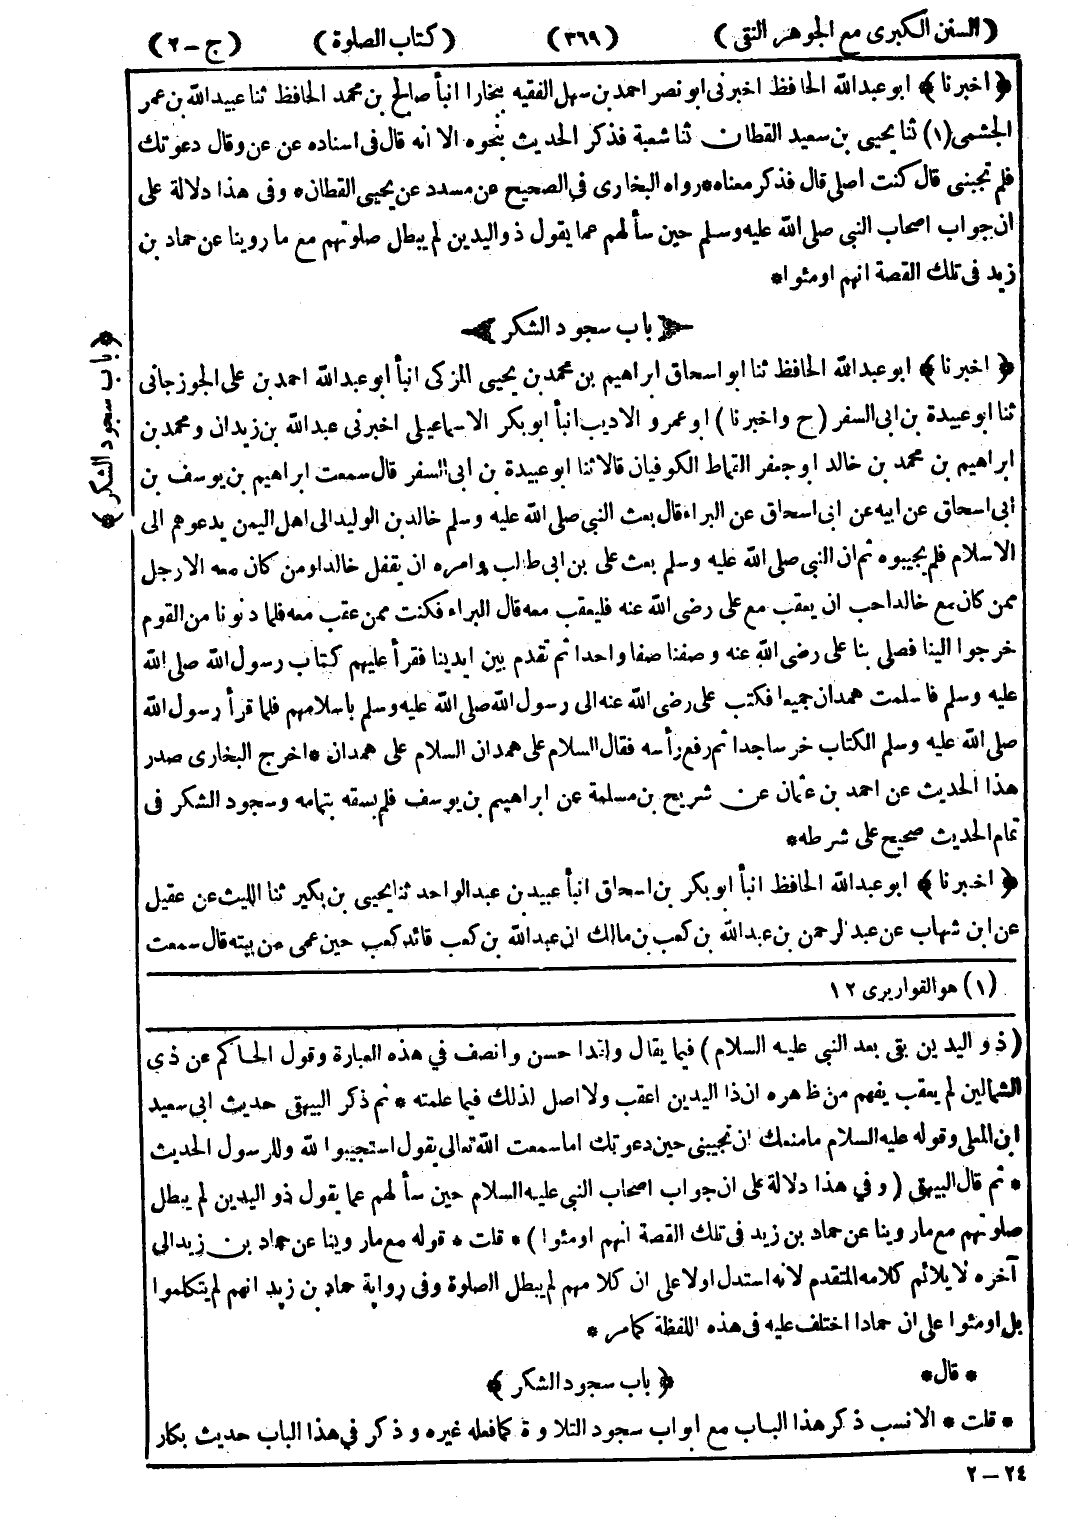 (السنن الكبرى مع الجوهر النقى) (٣٦٩) (كتاب الصلوة) (ج – ٢)
﴿اخبرنا﴾ ابو عبدالله الحافظ اخبرنى ابو نصر احمد بن سهل الفقيه ببخارا انبأ صالح بن محمد الحافظ ثنا عبيدالله بن عمر
الجشمى (١) ثنا يحيى بن سعيد القطان ثنا شعبة فذكر الحديث بنحوه الا انه قال فى اسناده عن عن وقال دعوتك
فلم تجبنى قال كنت اصلى قال فذكر معناه* رواه البخارى فى الصحيح عن مسدد عن يحيى القطان* وفى هذا دلالة على
ان جواب اصحاب النبى صلى الله عليه وسلم حين سألهم عما يقول ذو اليدين لم يبطل صلوتهم مع ما روينا عن حماد بن
زيد فى تلك القصة انهم اومئوا*
﴿باب سجود الشكر﴾
﴿باب سجود الشكر﴾
﴿اخبرنا﴾ ابو عبدالله الحافظ ثنا ابو اسحاق ابراهيم بن محمد بن يحيى المزكى انبأ ابو عبدالله احمد بن على الجوزجانى
ثنا ابو عبيدة بن ابى السفر (ح واخبرنا) ابو عمرو الاديب انبأ ابو بكر الاسماعيلى اخبرنى عبدالله بن زيدان ومحمد بن
ابراهيم بن محمد بن خالد ابو جعفر القماط الكوفيان قالا ثنا ابو عبيدة بن ابى السفر قال سمعت ابراهيم بن يوسف بن
ابى اسحاق عن ابيه عن ابى اسحاق عن البراء قال بعث النبى صلى الله عليه وسلم خالد بن الوليد الى اهل اليمن يدعوهم الى
الاسلام فلم يجيبوه ثم ان النبى صلى الله عليه وسلم بعث على بن ابى طالب وامره ان يقفل خالدا ومن كان معه الا رجل
ممن كان مع خالد احب ان يعقب مع على رضى الله عنه فليعقب معه قال البراء فكنت ممن عقب معه فلما دنونا من القوم
خرجوا الينا فصلى بنا على رضى الله عنه وصفنا صفا واحدا ثم تقدم بين ايدينا فقرأ عليهم كتاب رسول الله صلى الله
عليه وسلم فاسلمت همدان جميعا فكتب على رضى الله عنه الى رسول الله صلى الله عليه وسلم باسلامهم فلما قرأ رسول الله
صلى الله عليه وسلم الكتاب خر ساجدا ثم رفع رأسه فقال السلام على همدان السلام على همدان *اخرج البخارى صدر
هذا الحديث عن احمد بن عثمان عن شريح بن مسلمة عن ابراهيم بن يوسف فلم يسقه بتمامه وسجود الشكر فى
تمام الحديث صحيح على شرطه*
﴿اخبرنا﴾ ابو عبدالله الحافظ انبأ ابو بكر بن اسحاق انبأ عبيد بن عبد الواحد ثنا يحيى بن بكير ثنا الليث عن عقيل
عن ابن شهاب عن عبد الرحمن بن عبدالله بن كعب بن مالك ان عبدالله بن كعب قائد كعب حين عمى من بيته قال سمعت
(١) هو القواريرى ١٢
(ذو اليدين بقى بعد النبى عليه السلام) فيما يقال ولقدا حسن وانصف في هذه العبارة وقول الحاكم عن ذي
الشمالين لم يعقب يفهم من ظاهره ان ذا اليدين اعقب ولا اصل لذلك فيما علمته * ثم ذكر البيهقى حديث ابي سعيد
ابن المعلى وقوله عليه السلام ما منعك ان تجيبنى حين دعوتك اما سمعت الله تعالى يقول استجيبوا لله وللرسول الحديث
* ثم قال البيهقى (وفي هذا دلالة على ان جواب اصحاب النبى عليه السلام حين سألهم عما يقول ذو اليدين لم يبطل
صلوتهم مع ما روينا عن حماد بن زيد فى تلك القصة انهم اومئوا) * قلت * قوله مع ما روينا عن حماد بن زيد الى
آخره لا يلائم كلامه المتقدم لانه استدل اولا على ان كلامهم لم يبطل الصلوة وفى رواية حماد بن زيد انهم لم يتكلموا
بل اومئوا على ان حمادا اختلف عليه فى هذه اللفظة كما مر *
* قال* ﴿باب سجود الشكر﴾
* قلت * الانسب ذكر هذا الباب مع ابواب سجود التلاوة كما فعله غيره وذكر في هذا الباب حديث بكار
٢٤ – ٢